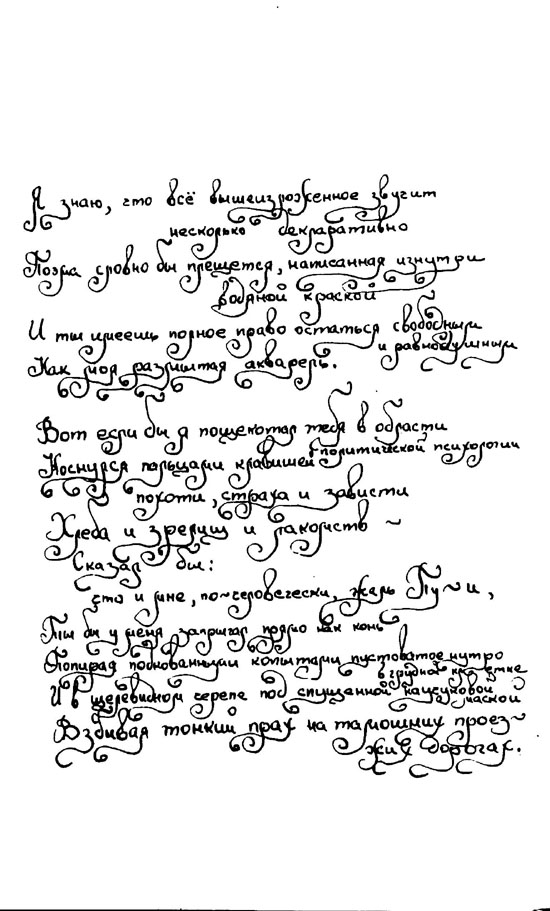 Я знаю, что всё вышеизложенное звучит
несколько декларативно
Поэма словно бы плещется, написанная изнутри
водяной краской
И ты имеешь полное право остаться свободным
и равнодушным
Как моя размытая акварель.
Вот если бы я пощекотал тебя в области
политической психологии
Коснулся пальцами клавишей
похоти, страха и зависти
Хлеба и зрелищ и лакомств ~
Сказал бы:
что и мне, по-человечески, жаль
Ты бы у меня заплясал прямо как конь
Топирая подкованными копытами пустоватое нутро
в грудной клетке
И в щелевидном черепе под спущенной
маской
Взбивая тонкий прах на тамошних проез~
жих дорогах.